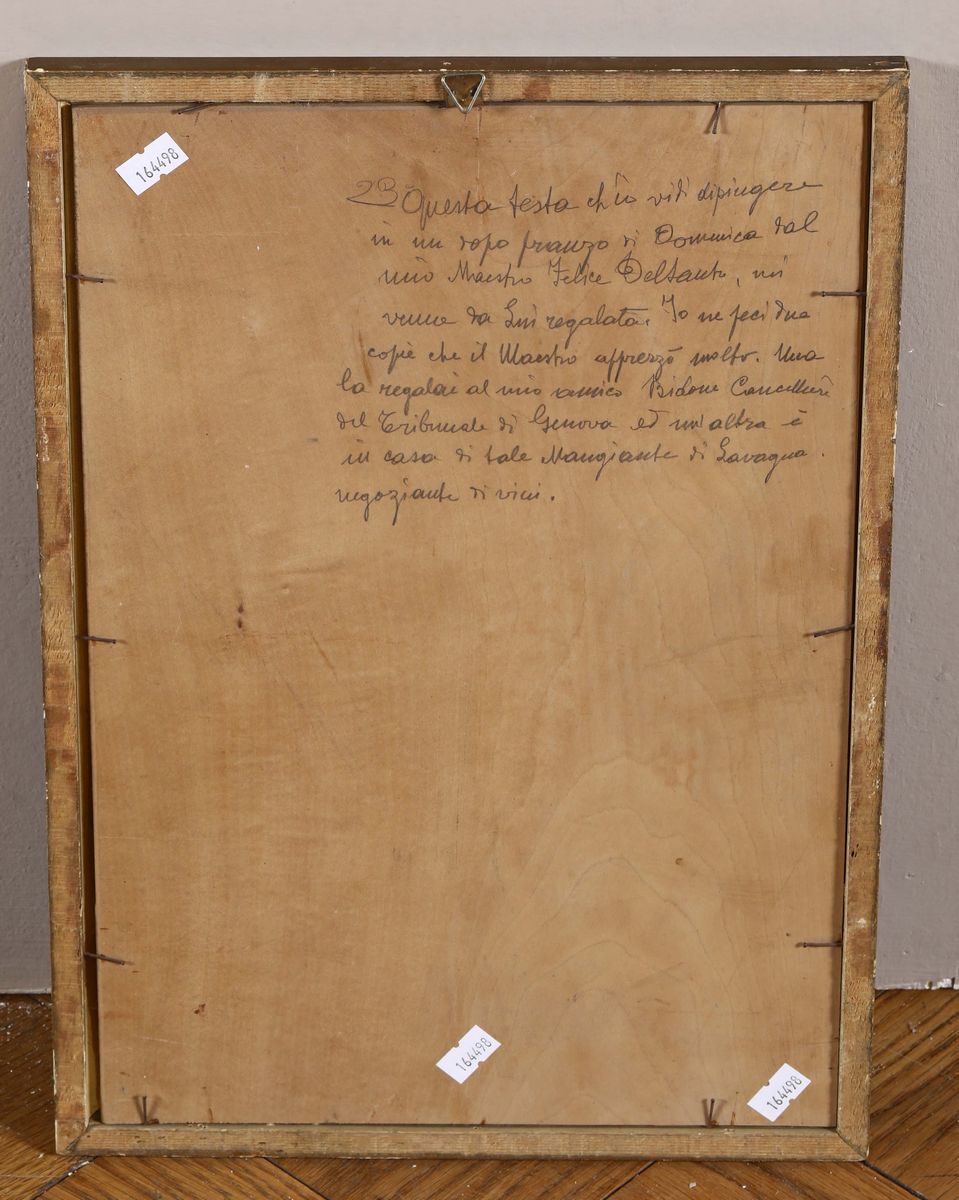 164498
23 Questa testa ch'io vidi dipingere
in un dopo pranzo di Domenica dal
mio Maestro Felice Delsanto, mi
venne da Lui regalata. Io ne feci due
copie che il Maestro apprezzò molto. Una
la regalai al mio amico Bidone Cancelliere
del Tribunale di Genova ed un'altra è
in casa di tale Mangiante di Lavagna.
negoziante di vini.
164498
164498